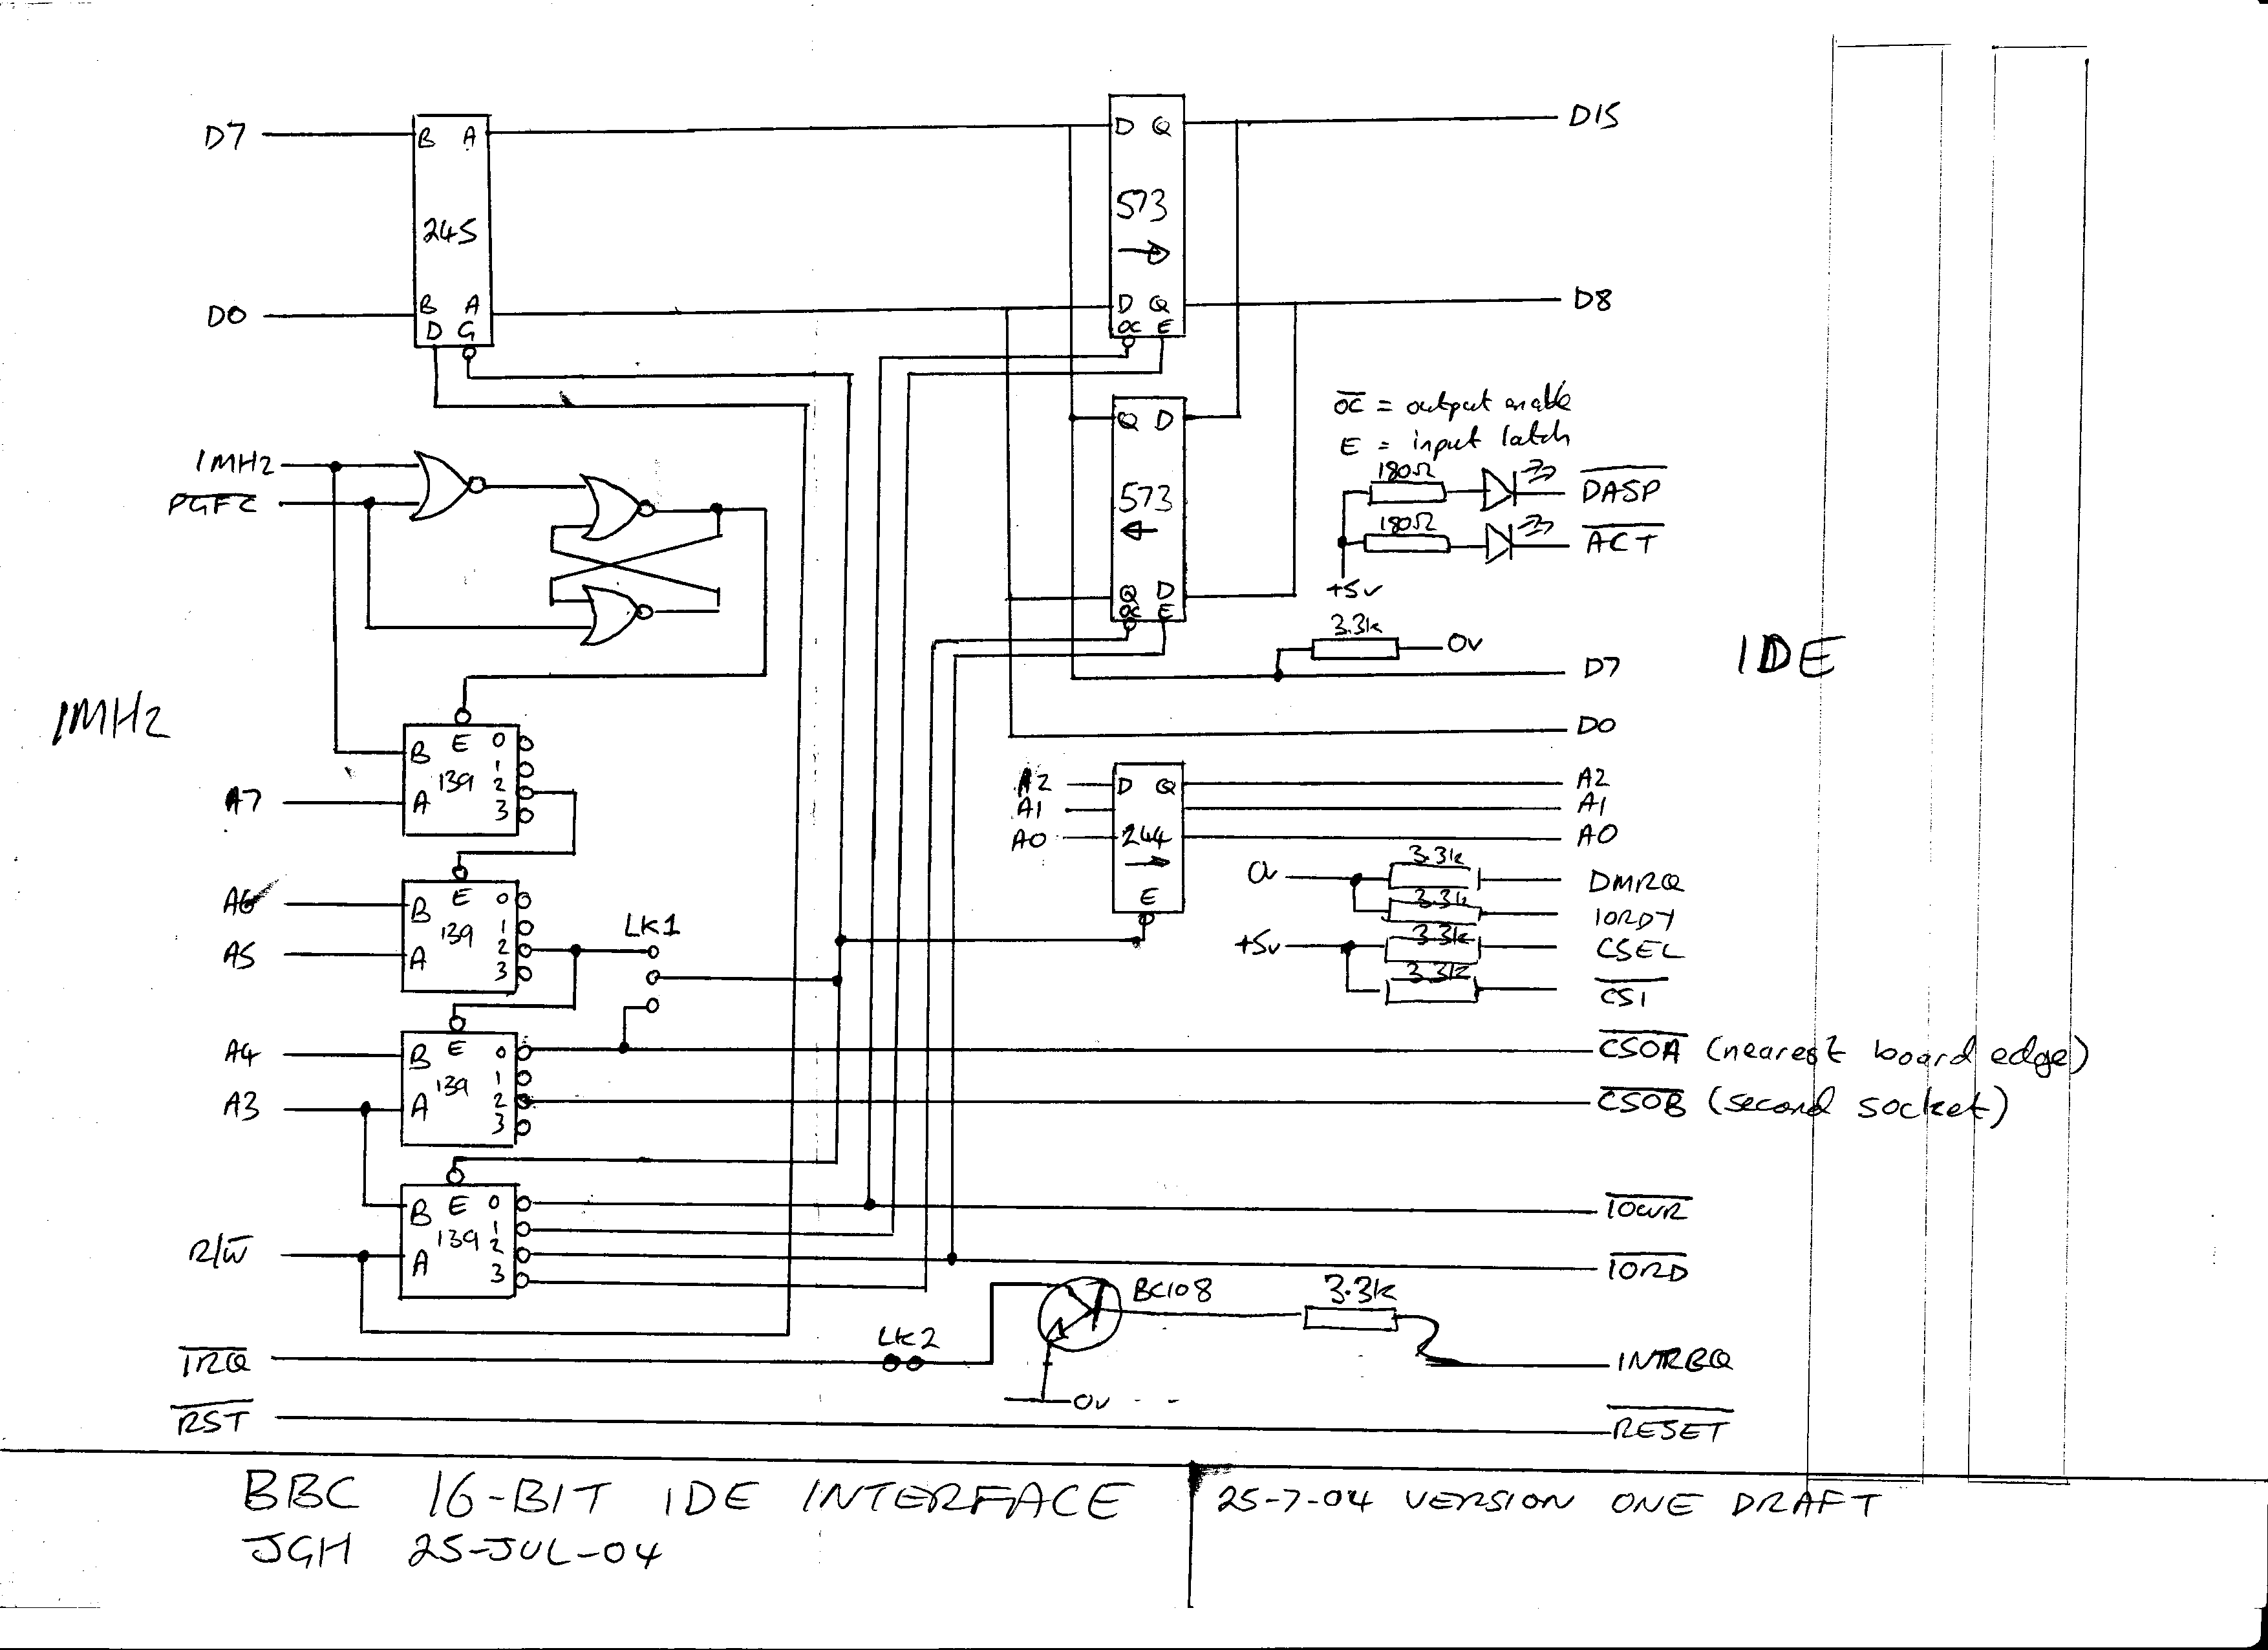 D7
B A
245
D0
B A
D G
D Q
573
→
D Q
OC E
D15
D8
Q D
573
←
Q D
OC E
OC = output enable
E = input latch
180Ω
DASP
180Ω
ACT
+5v
3.3k
0v
D7
D0
IDE
1MHz
PGFC
1MHz
B E 0
139 1
2
A 3
A7
A6
A5
B E 0
139 1
2
A 3
LK1
A4
A3
B E 0
139 1
2
A 3
B E 0
139 1
2
A 3
R/W
A2
A1
A0
D Q
244
→
E
A2
A1
A0
0v
3.3k
DMRQ
3.3k
IORDY
+5v
3.3k
CSEL
3.3k
CS1
CS0A (nearest board edge)
CS0B (second socket)
IOWR
IORD
BC108
3.3k
IRQ
LK2
INTRQ
0v
RST
RESET
BBC 16-BIT IDE INTERFACE
JGH 25-JUL-04
25-7-04 VERSION ONE DRAFT